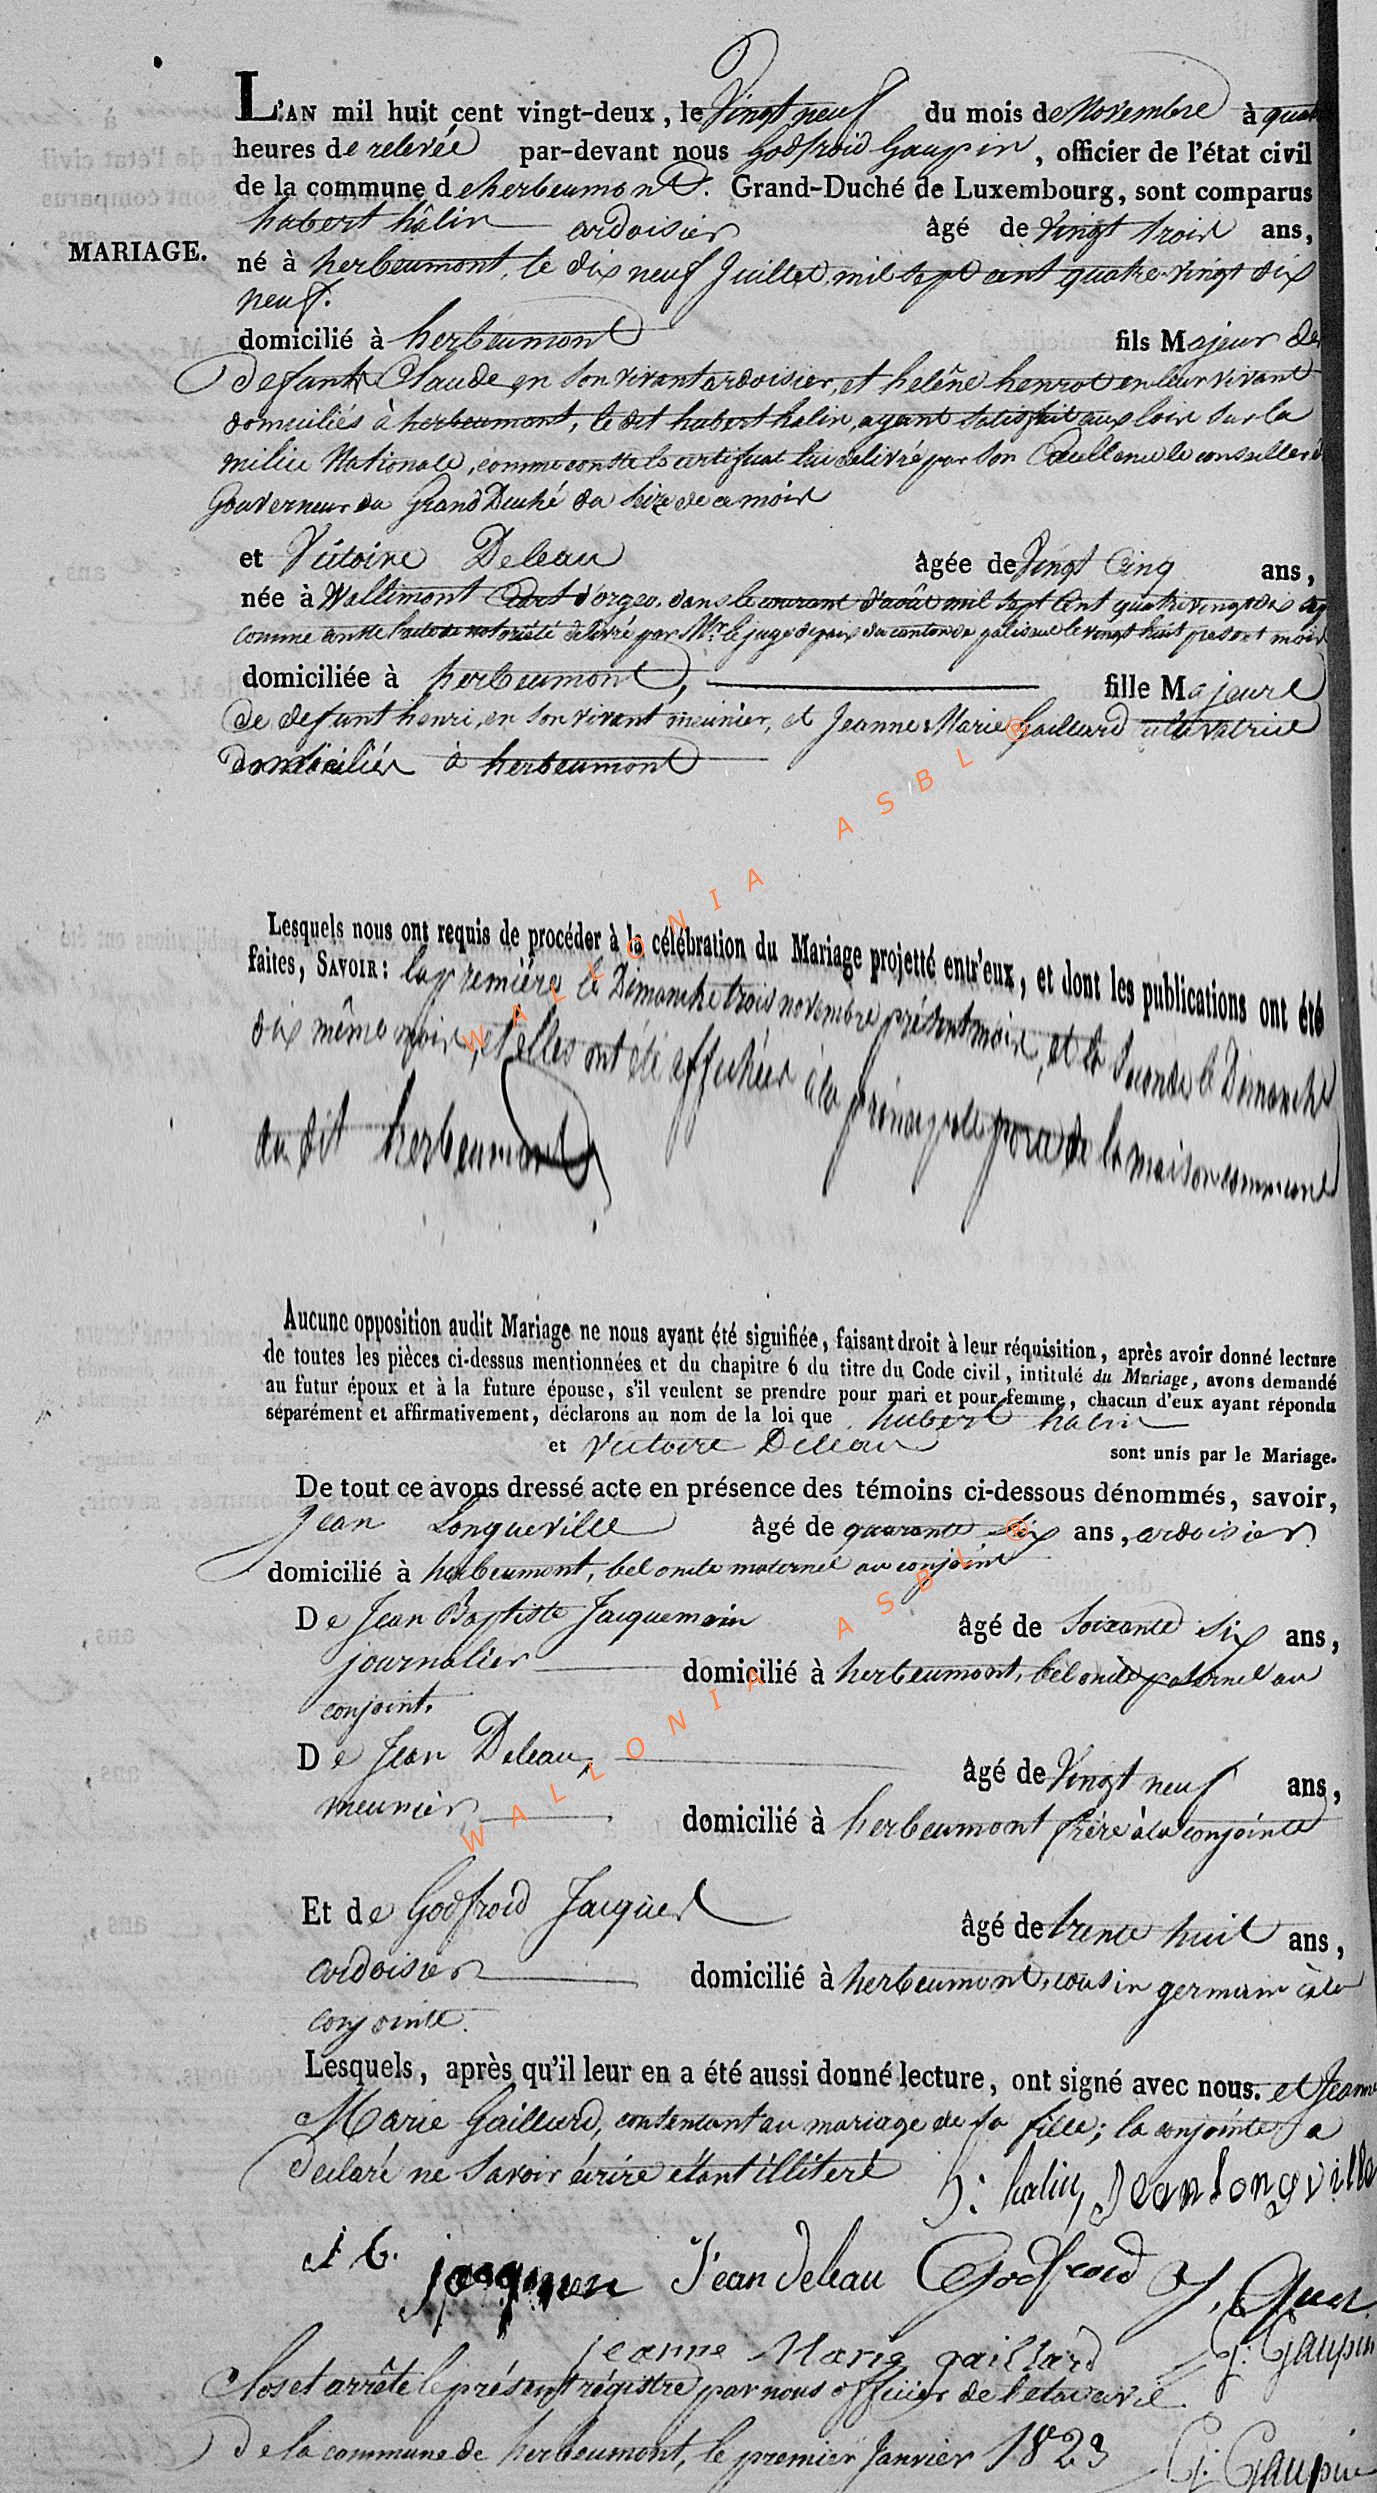 L'AN mil huit cent vingt-deux, le Vingt neuf du mois de Novembre à quat
heures de relevée par-devant nous Godfroid Gaupin, officier de l'état civil
de la commune d'herbeumont. Grand-Duché de Luxembourg, sont comparus
hubert hâlin ardoisier âgé de Vingt trois ans,
MARIAGE.
né à herbeumont, le dix neuf Juillet mil sept cent quatre-vingt dix
neuf.
domicilié à herbeumont fils Majeur de
defunts Claude, en son vivant ardoisier, et heléne henrot en leur vivant
domiciliés à herbeumont, le dit hubert halin, ayant satisfait aux loix sur la
milice Nationale, comme conste le certificat lui délivré par Son Excellence le conseiller
Gouverneur du Grand Duché du seize de ce mois
et Victoire Deleau âgée de Vingt Cinq ans,
née à Wallimont d'orgeo, dans le courant d'août mil sept Cent quatre vingt dix sept
comme conste l'acte de notoriété délivré par Mr. le juge de paix du canton de paliseul le vingt huit present mois
domiciliée à herbeumont, fille Majeure
de defunt henri, en son vivant meunier, et Jeanne Marie Gaillard cultivatrice
domiciliés à herbeumont
Lesquels nous ont requis de procéder à la célébration du Mariage projetté entr'eux, et dont les publications ont été
faites, SAVOIR: la premiére le Dimanche trois novembre présent mois, et la seconde le Dimanche
dix même mois, et elles ont été affichées à la principale porte de la maison commune
du dit herbeumont
Aucune opposition audit Mariage ne nous ayant été signifiée, faisant droit à leur réquisition, après avoir donné lecture
de toutes les pièces ci-dessus mentionnées et du chapitre 6 du titre du Code civil, intitulé du Mariage, avons demandé
au futur époux et à la future épouse, s'il veulent se prendre pour mari et pour femme, chacun d'eux ayant répondu
séparément et affirmativement, déclarons au nom de la loi que hubert halin
et Victoire Deleau sont unis par le Mariage.
De tout ce avons dressé acte en présence des témoins ci-dessous dénommés, savoir,
Jean Longueville âgé de quarante six ans, ardoisier
domicilié à herbeumont, bel oncle maternel au conjoint
De Jean Baptiste Jacquemin âgé de Soixante Six ans,
journalier domicilié à herbeumont, bel oncle paternel au
conjoint.
De Jean Deleau, âgé de Vingt neuf ans,
meunier domicilié à herbeumont frère à la conjointe
Et de Godfroid Jacques âgé de trente huit ans,
ardoisier domicilié à herbeumont, cousin germain à la
conjointe.
Lesquels, après qu'il leur en a été aussi donné lecture, ont signé avec nous. et Jeanne
Marie Gaillard, contentant au mariage de sa fille; la conjointe a
declaré ne savoir écrire étant illiteré h: halin, Jean Longville
J b. jaqmen Jean deleau Godfroid J. Ques
jeanne Marie gaillard G: Gaupin
Clos et arrêté le présent régistre par nous officier de l'état civil
De la commune de herbeumont, le premier Janvier 1823 G: Gaupin
WALLONIA ASBL ®
WALLONIA ASBL ®